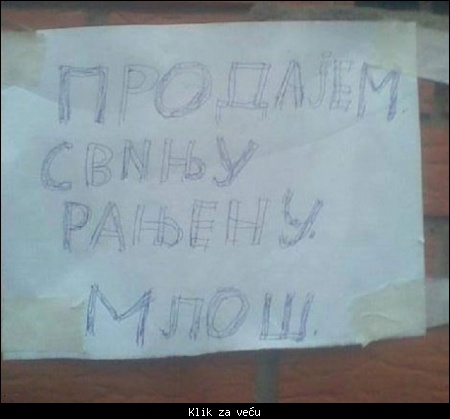 ПРОДАЈЕМ.
СВИЊУ
РАЊЕНУ.
МЛОШ.
Klik za veću